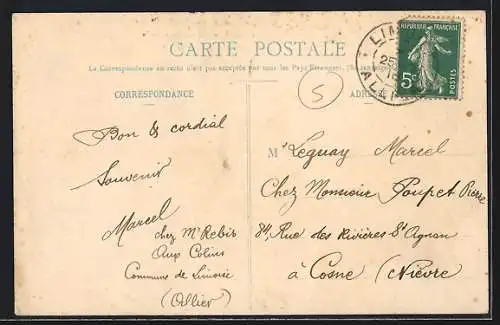 CARTE POSTALE
La Correspondance au recto n'est pas acceptée par tous les Pays Etrangers.
CORRESPONDANCE
ADRESSE
RÉPUBLIQUE FRANÇAISE
5c
POSTES
LIM
25
ALL
5
Bon & cordial
Souvenir
Marcel
chez Mr Rebis
Aux Colins
Commune de Limoise
(Allier)
M Leguay Marcel
Chez Monsieur Poupet Pierre
84, Rue des Rivières St Agnan
à Cosne (Nièvre)